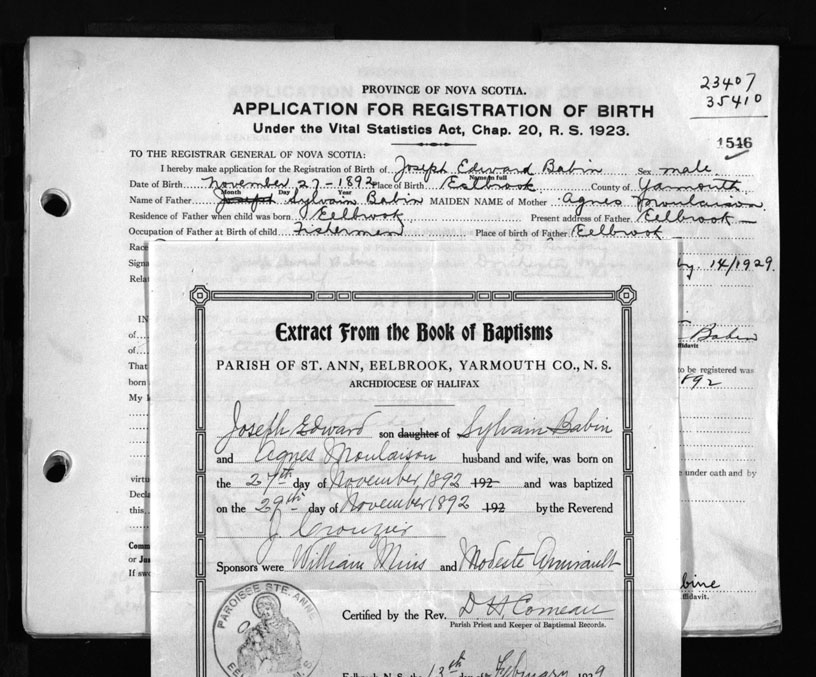 23407
35410
PROVINCE OF NOVA SCOTIA.
APPLICATION FOR REGISTRATION OF BIRTH
Under the Vital Statistics Act, Chap. 20, R. S. 1923.
1516
TO THE REGISTRAR GENERAL OF NOVA SCOTIA:
I hereby make application for the Registration of Birth of Joseph Edward Babin Sex male
Name in full
Date of Birth November 27-1892 Place of Birth Eelbrook County of Yarmouth
Month Day Year
Name of Father Joseph Sylvain Babin MAIDEN NAME of Mother Agnes Moulaison
Residence of Father when child was born Eelbrook Present address of Father Eelbrook
Occupation of Father at Birth of child Fisherman Place of birth of Father Eelbrook
Race
Signa
14/1929.
Rela
IN
of
Babin
ffidavit
of
That
to be registered was
born
892
My
under oath and by
virtu
Decla
this
Comm
or Jus
If swo
bine
ffidavit.
Extract From the Book of Baptisms
PARISH OF ST. ANN, EELBROOK, YARMOUTH CO., N. S.
ARCHDIOCESE OF HALIFAX
Joseph Edward son daughter of Sylvain Babin
and Agnes Moulaison husband and wife, was born on
the 27th day of November 1892 192 and was baptized
on the 29th day of November 1892 192 by the Reverend
J. Crouzier
Sponsors were William Mius and Modeste Amirault
PAROISSE STE. ANNE
Certified by the Rev. D H Comeau
Parish Priest and Keeper of Baptismal Records.
Eelbrook, N. S. the 13th day of February 1929